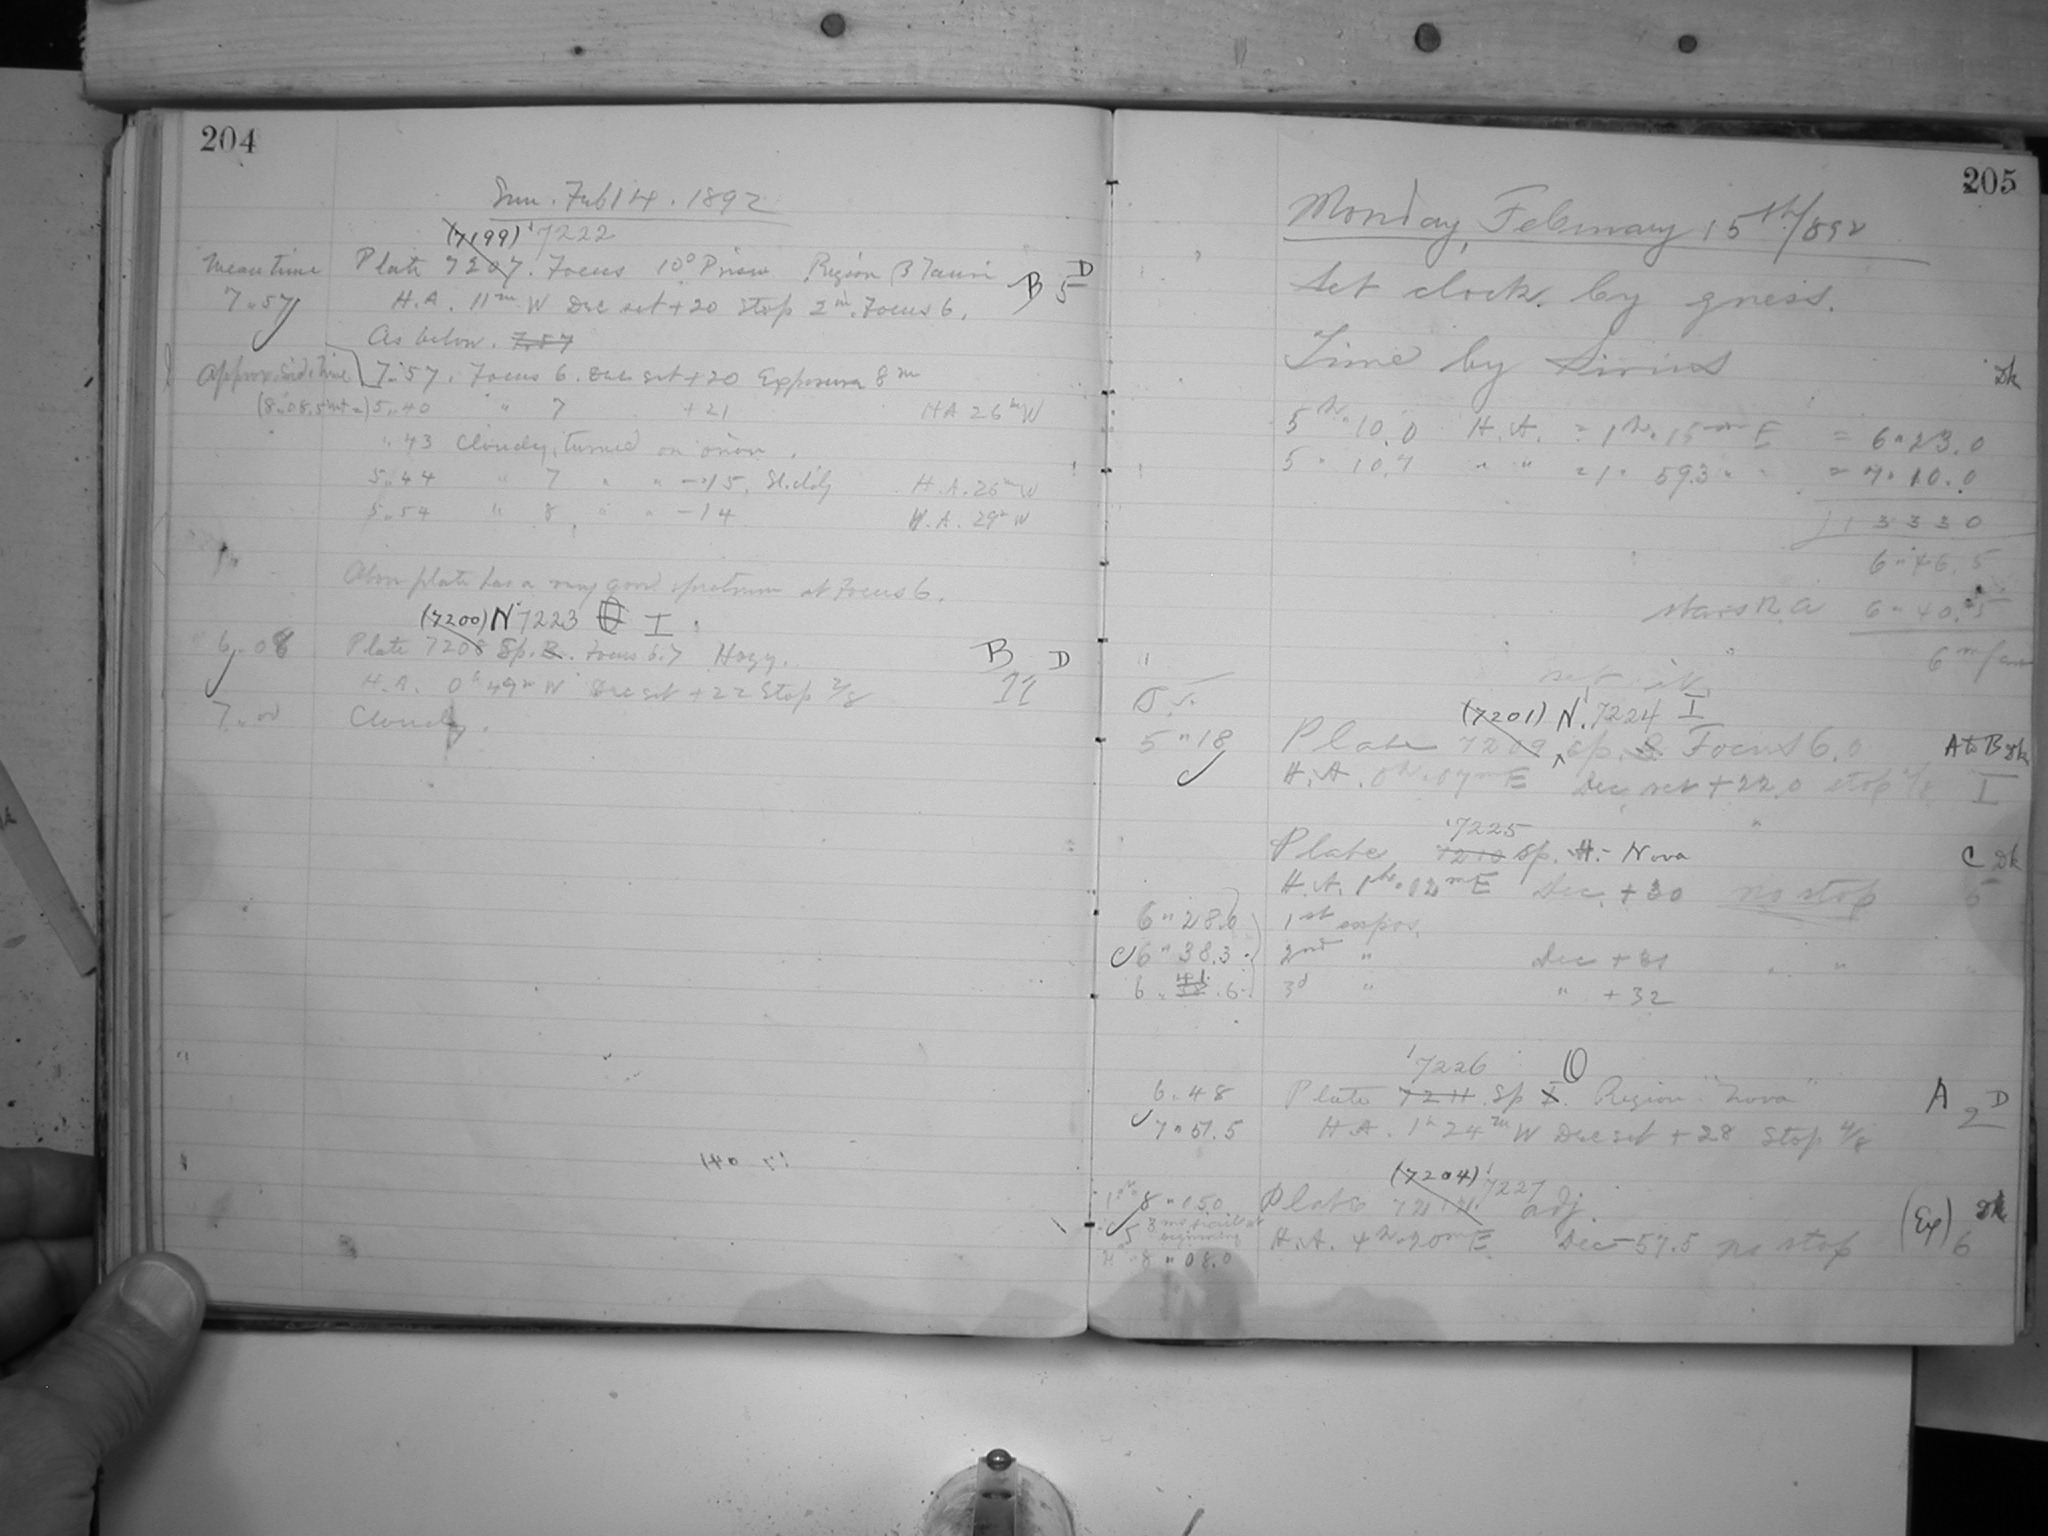 204
Sun. Feb 14. 1892
(7199) 7222
Mean time Plate 7207. Focus 10° Prism Region β Tauri B D
7.57 H.A. 11m W Dec set +20 Stop 2m. Focus 6. 5
As below. 7.57
Approx. Sid. Time 7.57. Focus 6. Dec set +20 Exposure 8m
5.40 " 7 +21 HA 26m W
".43 Cloudy, turned on orion.
5.44 " 7 " " -15, Sl. cldy H.A. 26m W
5.54 " 8 " " -14 H.A. 29m W
Above plate has a very good spectrum at Focus 6.
(7200) N 7223 I
6.08 Plate 7208 Sp. Focus 6.7 Hazy. B D
H.A. 0h 49m W Dec set +22 Stop 2/8 11
7.00 Cloudy.
205
Monday, February 15th/892
Set clock by guess.
Time by Sirius Dk
5h. 10.0 H.A. = 1h. 15m E = 6" 23.0
5 " 10.7 " " = 1 " 59.3 " " = 7 " 10.0
13 33.0
6 " 46.5
stars R.A 6 " 40.5
6m
set it
(7201) N. 7224 I
5 " 18 Plate 7209 sp. Focus 6.0 A to B Dk
H.A. 0h. 07m E Dec, set +22.0 stop I
7225
Plate, 7210 sp. H. Nova C Dk
H.A. 1h. 12m E Dec. +30 no stop 5
6 " 28.6 1st expos.
6 " 38.3 2nd " Dec +31 " "
6 " 41.6 3d " " +32
7226
6. 48 Plate 7211 Sp I. Region "Nova" A D
7 " 51.5 H.A. 1h 24m W Dec set +28 Stop 4/8 2
(7204) 7227
8 " 05.0 Plate 7212 adj. (Ex) Dk
H.A. 4h. 20m E Dec -57.5 no stop 6
8 " 08.0